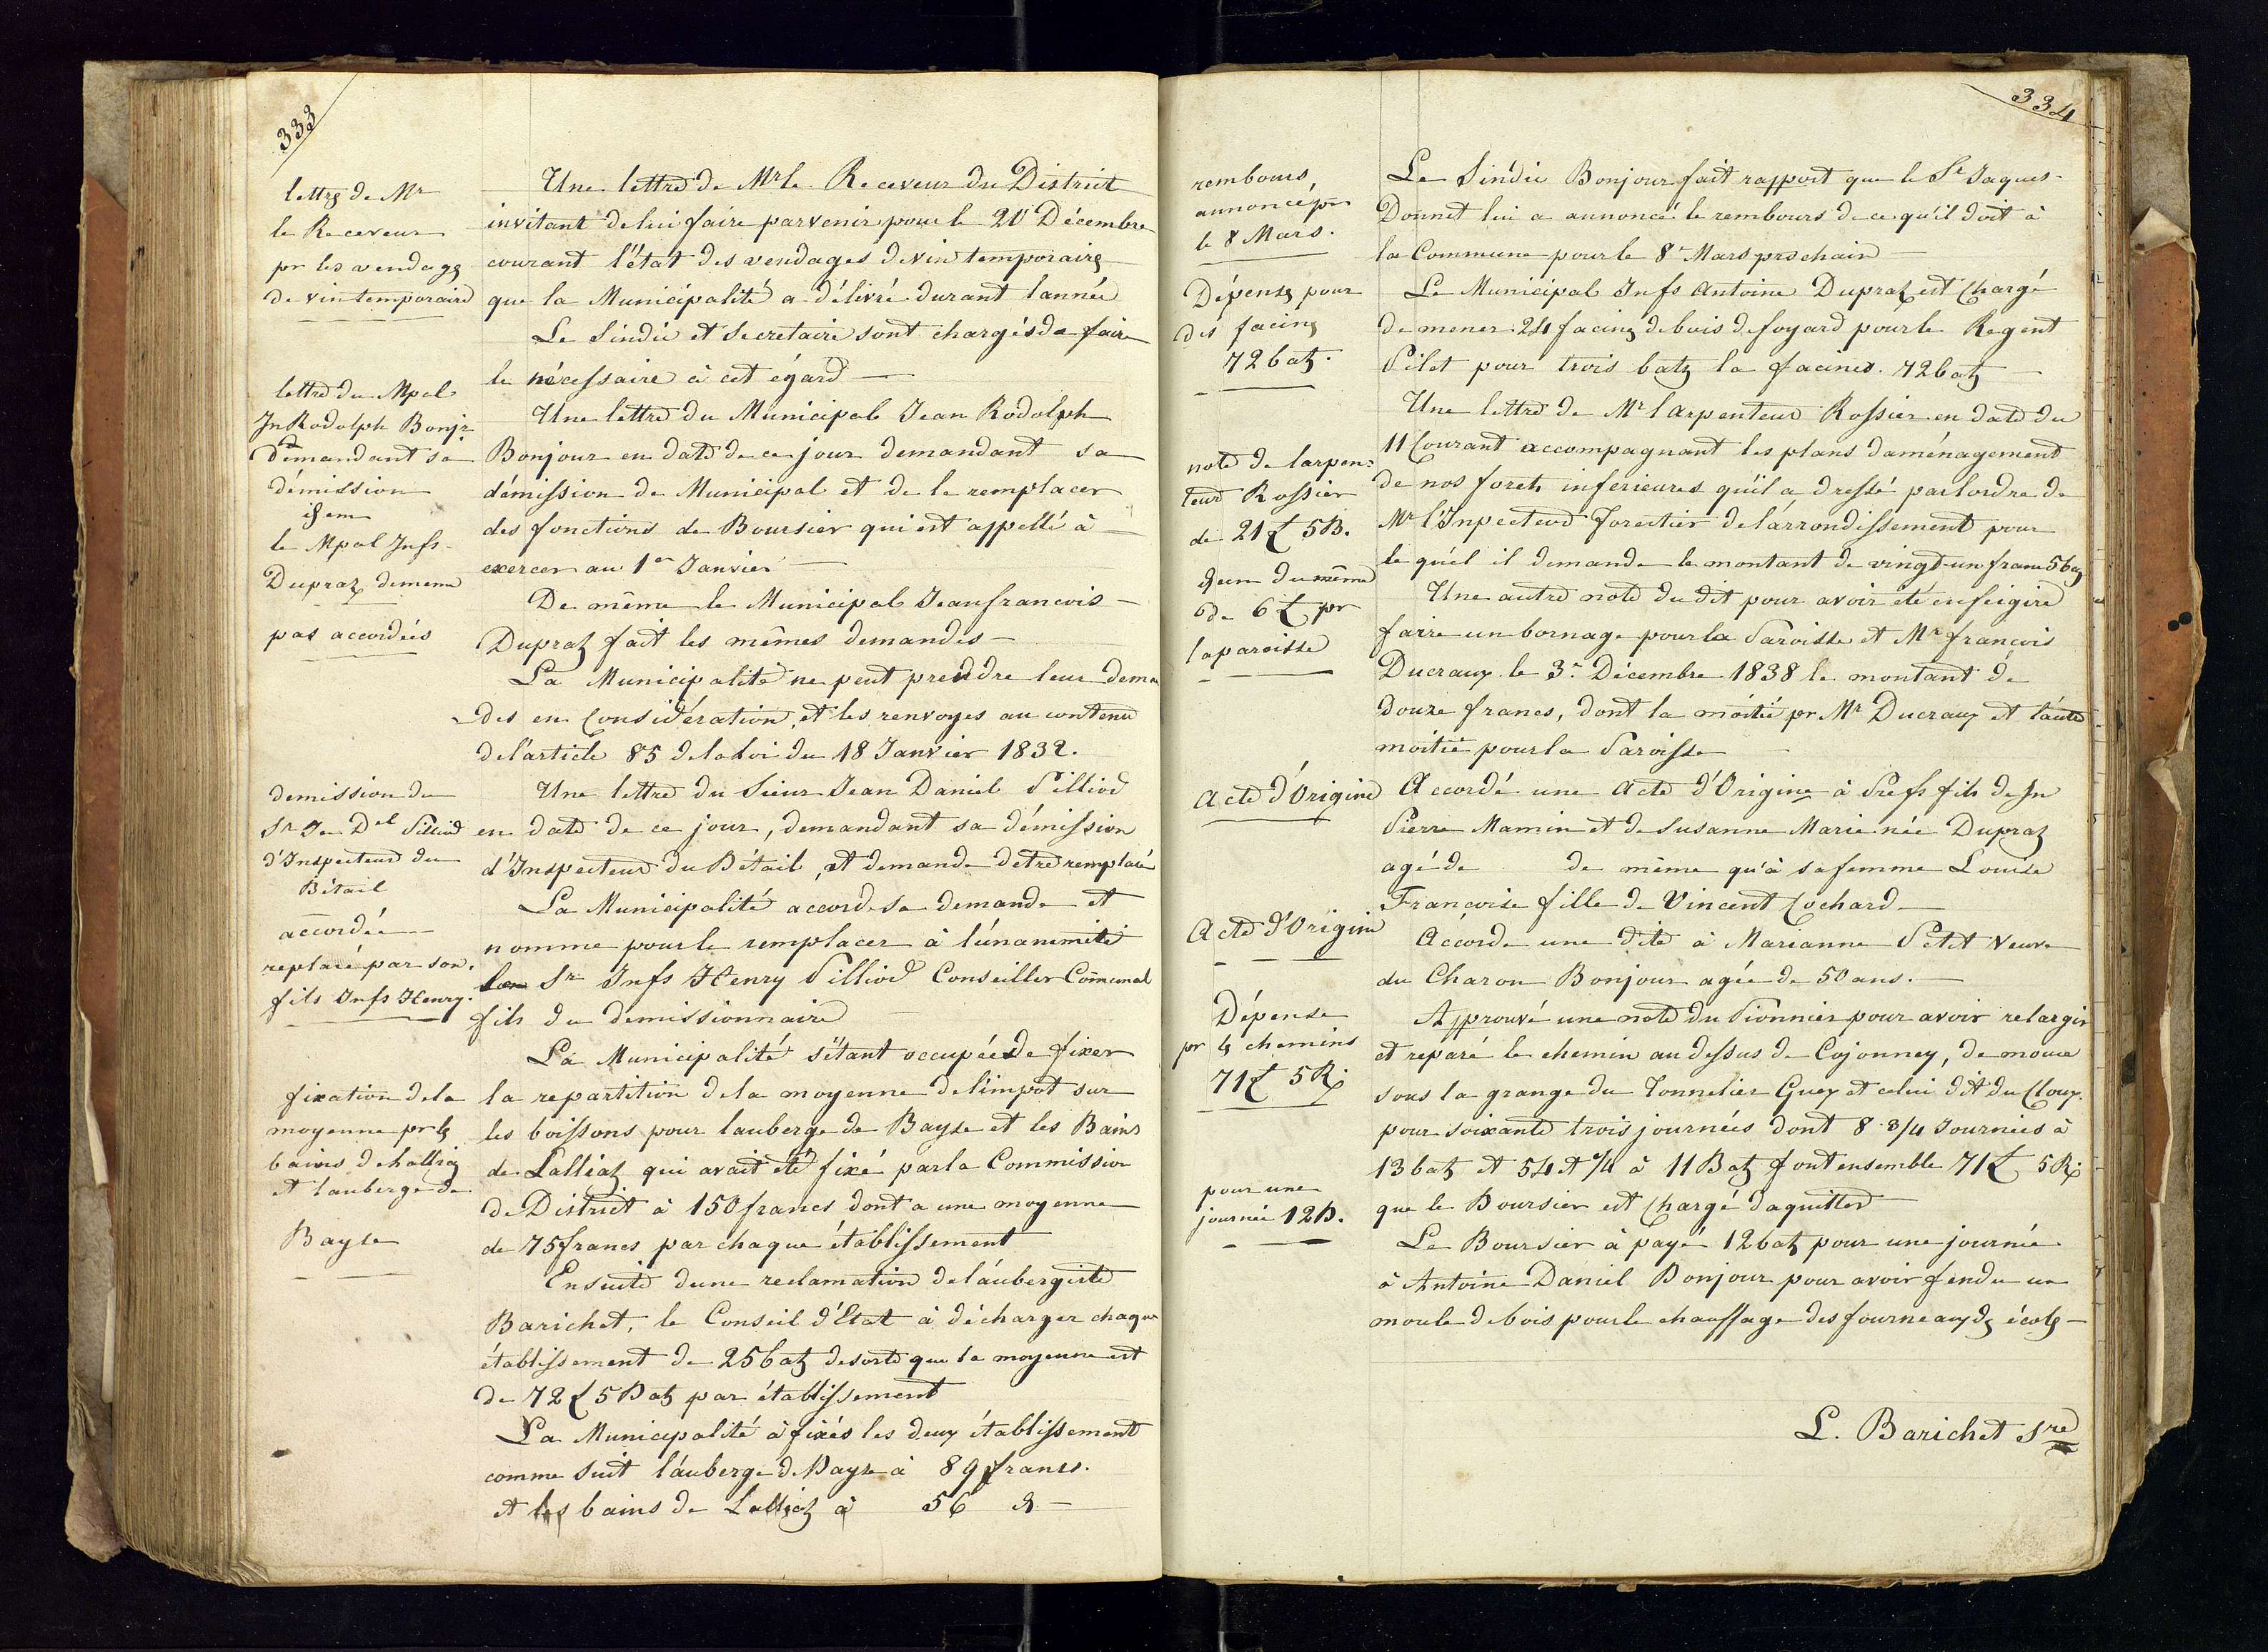 333
lettre de Mr
le Receveur
pr les vendages
de vin temporaire
Une lettre de Mr le Receveur du District
invitant de lui faire parvenir pour le 20 Décembre
courant l'état des vendages de vin temporaires
que la Municipalité a délivré durant l'année
Le Sindic et Secretaire sont chargés de faire
le nécessaire à cet égard
lettre du Mpal
Jn Rodolph Bonjr
demandant sa
démission
le Mpal Jnfs
Dupraz de meme
pas accordées
Une lettre du Municipal Jean Rodolph
Bonjour en date de ce jour demandant sa
démission de Municipal et de le remplacer
des fonctions de Boursier qui est appellé à
exercer au 1er Janvier
De même le Municipal Jean francois
Dupraz fait les mêmes demandes
La Municipalité ne peut prendre leur deman
des en Considération, et les renvoyes au contenu
de l'article 85 de la Loi du 18 Janvier 1832.
demission du
Sr Jn Del Pilliod
d'Inspecteur du
Bétail
accordée
replacé par son
fils Jnfs Henry.
Une lettre du Sieur Jean Daniel Pilliod
en date de ce jour, demandant sa démission
d'Inspecteur du Bétail, et demande detre remplacé
La Municipalité accorde sa demande et
nomme pour le remplacer à l'unanimité
Sr Jnfs Henry Pilliod Conseiller Communal
fils du démissionnaire
fixation de la
moyenne pr les
bains de Lalliaz
et lauberge de
Bayse
La Municipalité s'étant occupée de fixer
la repartition de la moyenne de l'impot sur
les boissons pour lauberge de Bayse et les Bains
de Lalliaz qui avait été fixé par la Commission
de District à 150 francs dont a une moyenne
de 75 francs par chaque établissement
Ensuite dune reclamation de l'aubergiste
Barichet, le Conseil d'Etat à décharger chaque
établissement de 25 batz desorte que la moyenne est
de 72 £ 5 Batz par établissement
La Municipalité à fixés les deux établissement
comme suit l'auberge de Bayse à 89 francs.
et les bains de Lalliaz à 56 d
334
rembours
annoncé pr
le 8 Mars.
Le Sindic Bonjour fait rapport que le Sr Jaques
Donnet lui a annoncé le rembours de ce qu'il doit à
la Commune pour le 8e Mars prochain
Dépense pour
des facines
72 batz.
Le Municipal Jnfs Antoine Dupraz est Chargé
de mener 24 facines de bois de foyard pour le Regent
Pilet pour trois batz la facines. 72 batz
note de larpen=
teur Rossier
de 21 £ 5 B.
Une lettre de Mr l'Arpenteur Rossier en date du
11 Courant accompagnant les plans daménagement
de nos forets inferieures qu'il a dressé par lordre de
Mr l'Inpecteur Forestier de l'arrondissement pour
le quel il demande le montant de vingt-un franc 5 bz
idem du même
de 6 £ pr
la paroisse
Une autre note du dit pour avoir été
faire un bornage pour la Paroisse et Mr francois
Ducraux le 3e Décembre 1838 le montant de
douze francs, dont la moitié pr Mr Ducraux et l'autre
moitié pour la Paroisse
Acte d'Origine
Accordé une Acte d'Origine à Prefs fils de Jn
Pierre Mamin et de Susanne Marie née Dupraz
agé de de même qu'à sa femme Louise
Françoise fille de Vincent Cochard
Acte d'Origine
Accorde une dite à Marianne Petit Veuve
du Charon Bonjour agée de 50 ans.
Dépense
pr les chemins
71 £ 5 R.
Approuvé une note du Pionnier pour avoir relargir
et reparé le chemin au dessus de Cojonney, de
sous la grange du Tonnelier Guex et celui dit du Cloux
pour soixante trois journées dont 8 3/4 Journées à
13 batz et 54 et 1/4 à 11 Batz font ensemble 71 £ 5 R.
que le Boursier est Chargé daquitter
pour une
journée 12 B.
Le Boursier à payé 12 batz pour une journée
à Antoine Daniel Bonjour pour avoir fendu un
moule de bois pour le chauffage des fourneaux des écoles
L. Barichet Sre